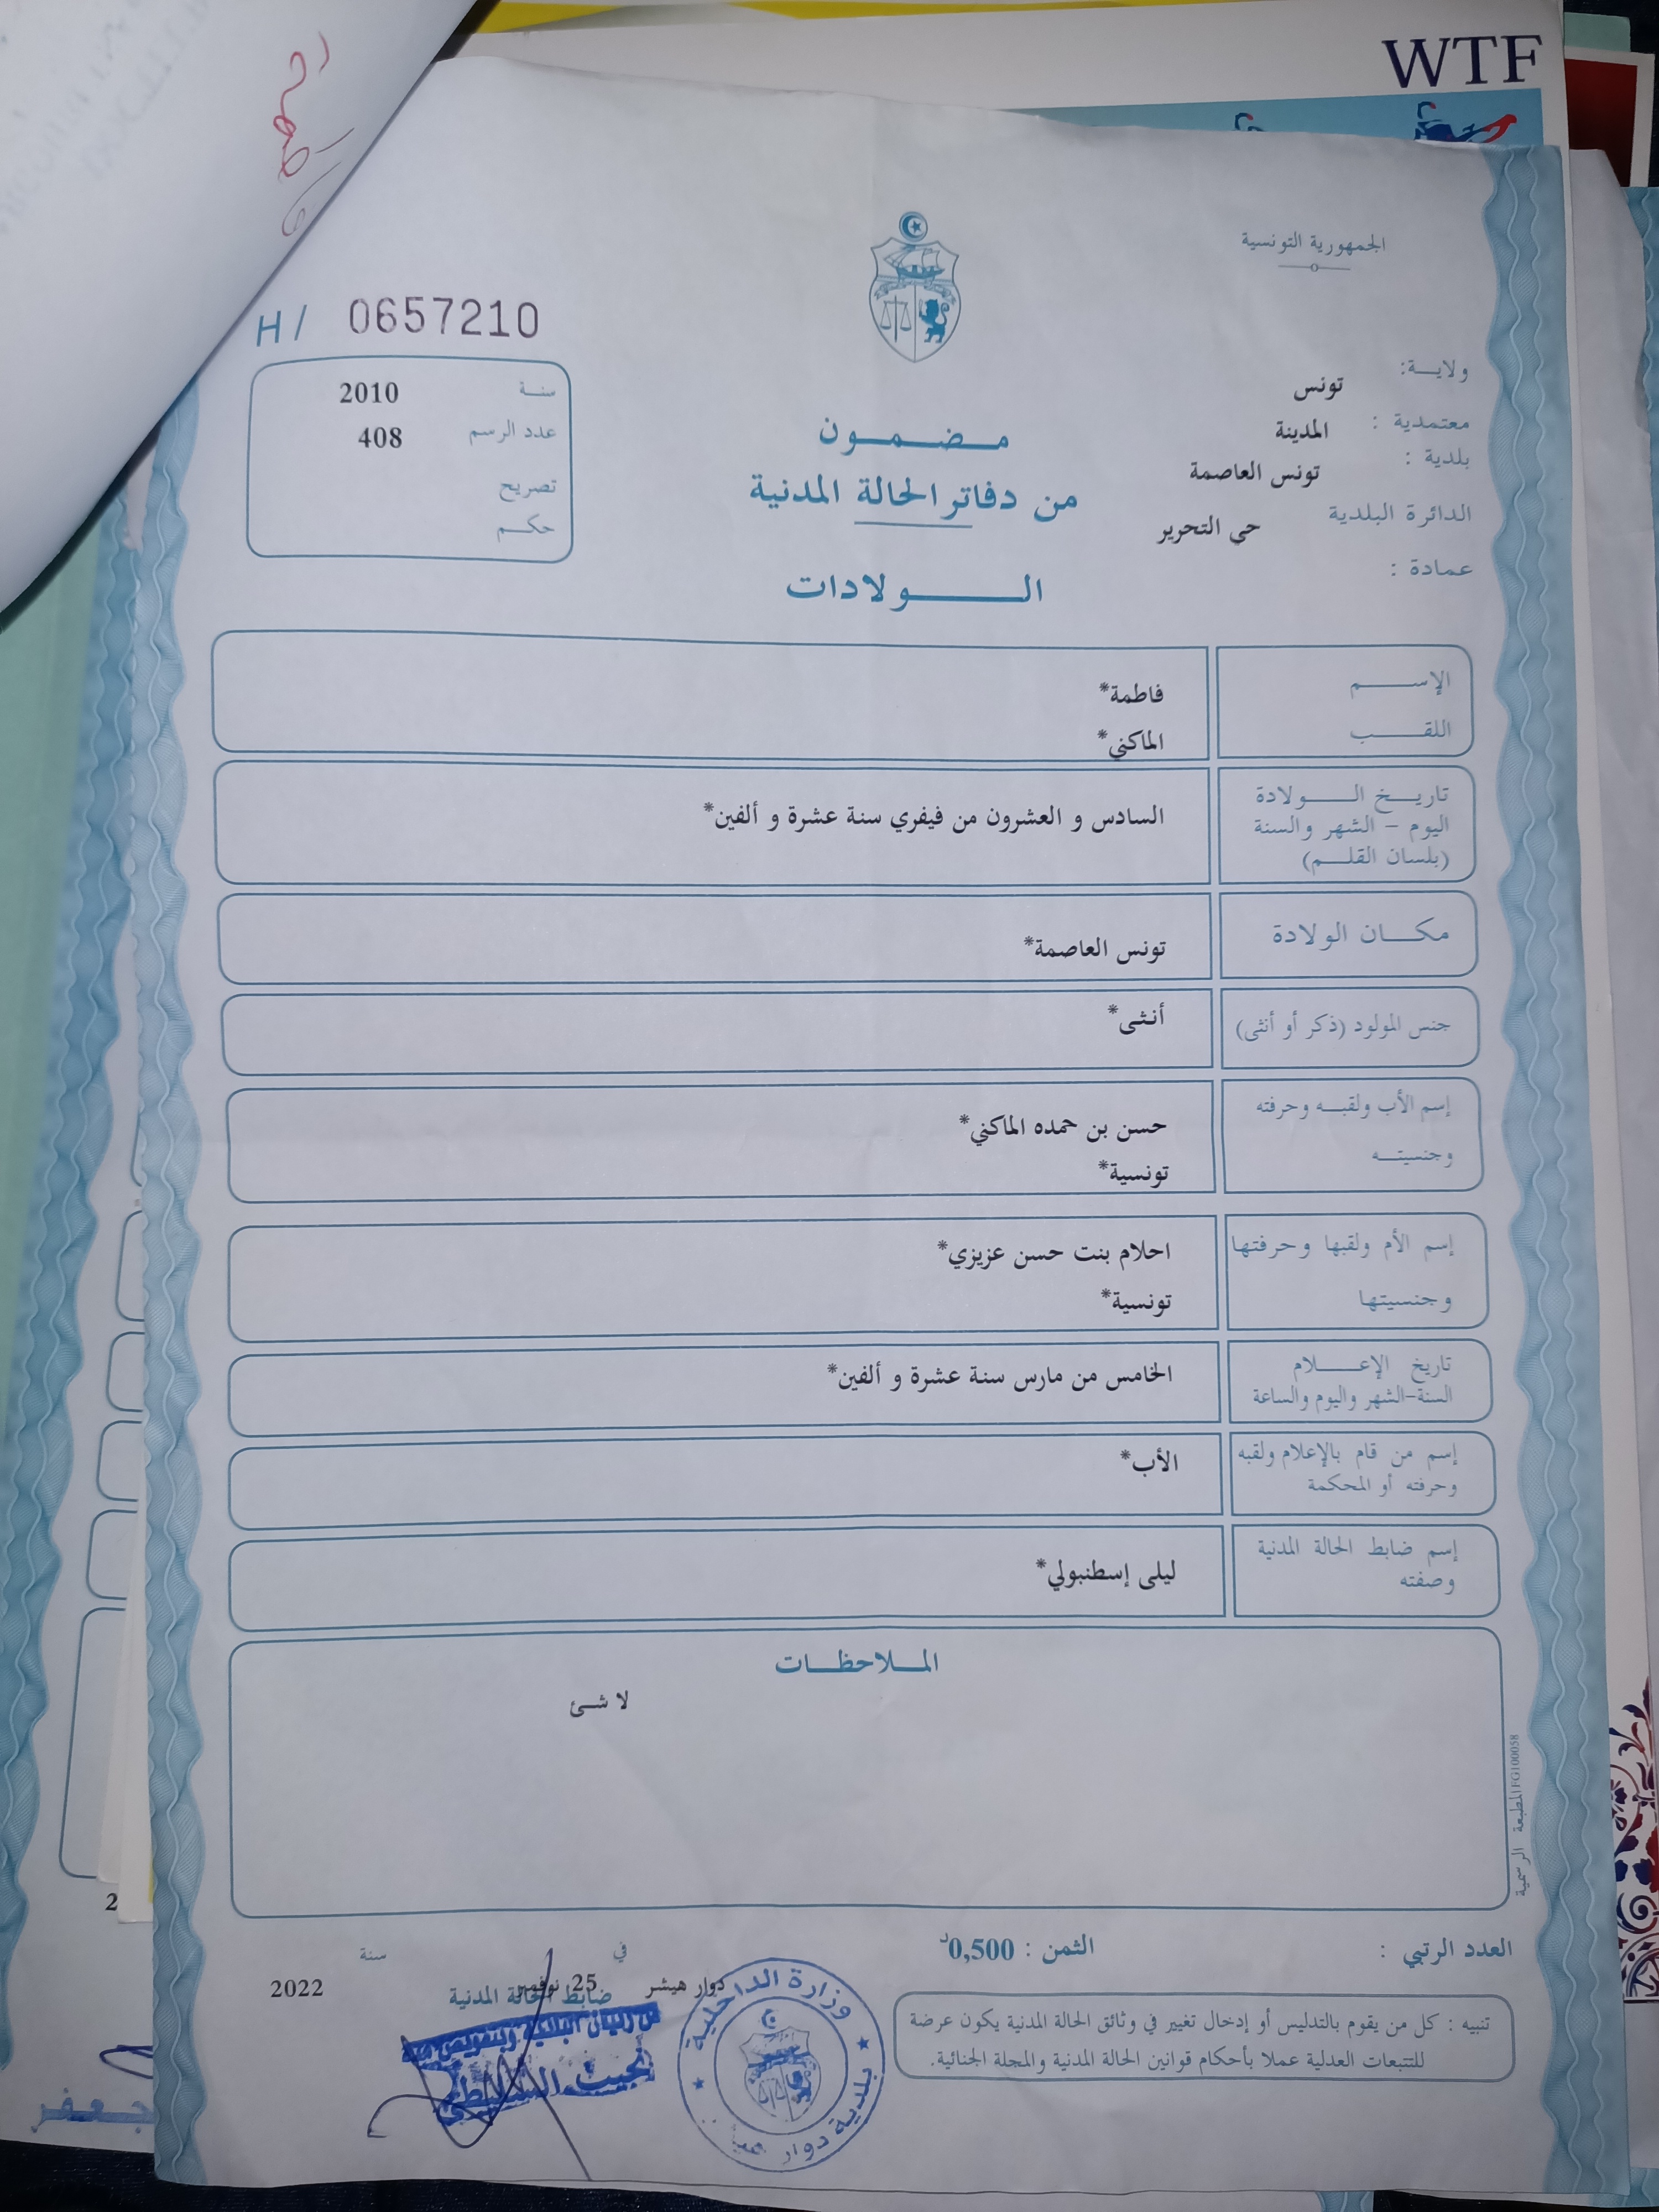 WTF
الجمهورية التونسية
H/ 0657210
ولايـــة: تونس
معتمدية : المدينة
بلدية : تونس العاصمة
الدائرة البلدية حي التحرير
عمادة :
سنـــة 2010
عدد الرسم 408
تصريح
حكـــم
مـــضـــمـــون
من دفاتر الحالة المدنية
الـــــــولادات
الإســـــم فاطمة*
اللقـــــب الماكني*
تاريـــخ الـــــولادة
اليوم - الشهر والسنة
(بلسان القلـــم)
السادس و العشرون من فيفري سنة عشرة و ألفين*
مكـــان الولادة
تونس العاصمة*
جنس المولود (ذكر أو أنثى)
أنثى*
إسم الأب ولقبـــه وحرفته
وجنسيتـــه
حسن بن حمده الماكني*
تونسية*
إسم الأم ولقبها وحرفتها
وجنسيتها
احلام بنت حسن عزيزي*
تونسية*
تاريخ الإعـــــلام
السنة-الشهر واليوم والساعة
الخامس من مارس سنة عشرة و ألفين*
إسم من قام بالإعلام ولقبه
وحرفته أو المحكمة
الأب*
إسم ضابط الحالة المدنية
وصفته
ليلى إسطنبولي*
المـــلاحظـــات
لا شئ
المطبعة الرسمية FG100058
العدد الرتبي :
الثمن : 0,500د
في
سنة
دوار هيشر 25 نوفمبر
2022
ضابط الحالة المدنية
وزارة الداخلية
بلدية دوار
تنبيه : كل من يقوم بالتدليس أو إدخال تغيير في وثائق الحالة المدنية يكون عرضة
للتتبعات العدلية عملا بأحكام قوانين الحالة المدنية والمجلة الجنائية.
2
جعفر